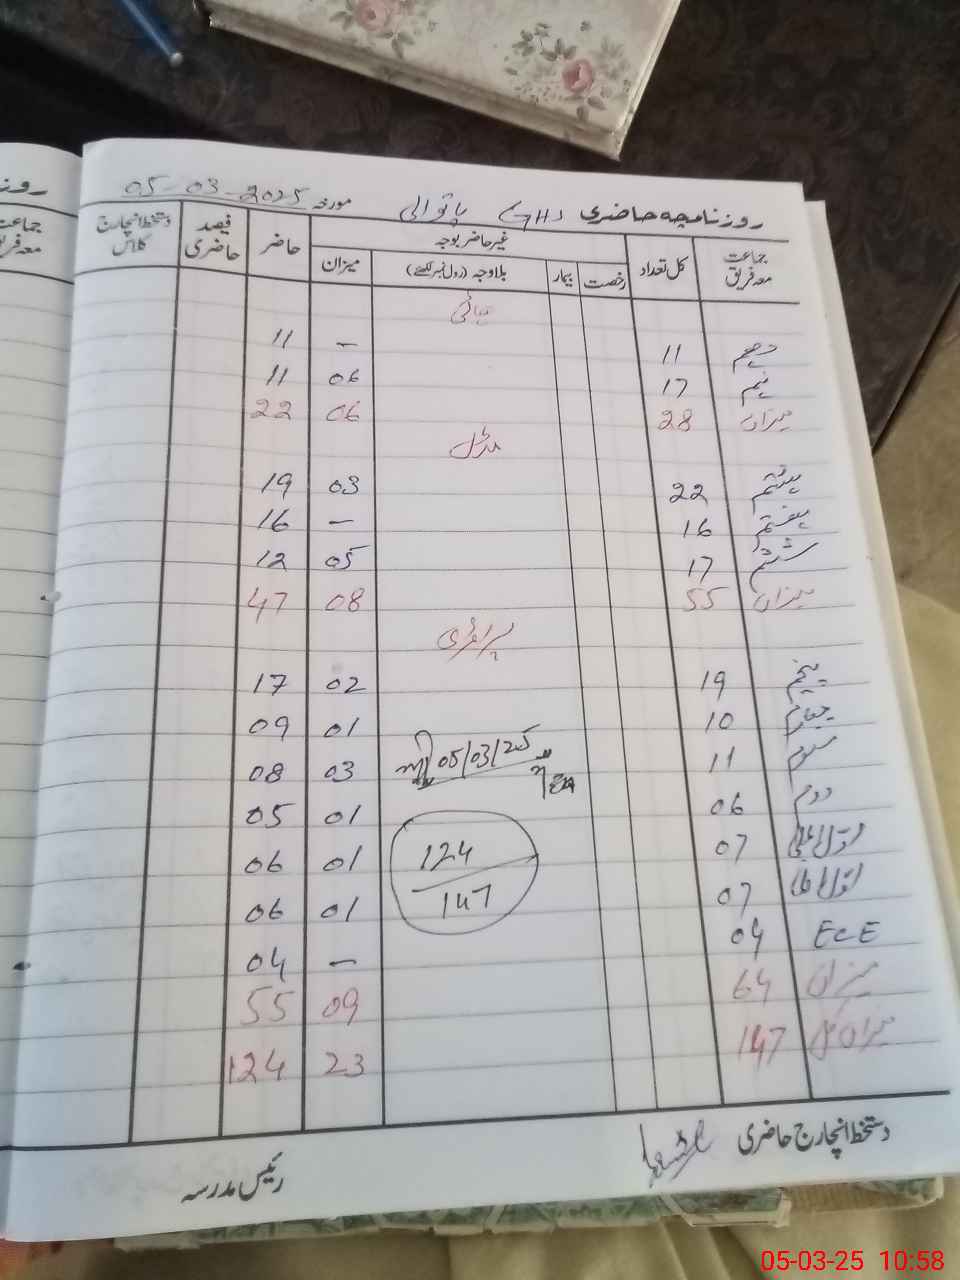 روزنامچہ حاضری GHS پاتوالی مورخہ 05-03-2025
جماعت معہ فریق کل تعداد غیر حاضر بوجہ حاضر فیصد حاضری دستخط انچارج کلاس
رخصت بیمار بلاوجہ (رول نمبر لکھئے) میزان
ہائی
دہم 11 - 11
نہم 17 06 11
میزان 28 06 22
مڈل
ہشتم 22 03 19
ہفتم 16 - 16
ششم 17 05 12
میزان 55 08 47
پرائمری
پنجم 19 02 17
چہارم 10 01 09
سوم 11 03 08
05/03/25
دوم 06 01 05
اول اعلیٰ 07 01 06
124
147
07 01 06
ECE 04 - 04
میزان 64 09 55
میزان کل 147 23 124
دستخط انچارج حاضری
رئیس مدرسہ
روز
جماعت
معہ فریق
05-03-25 10:58